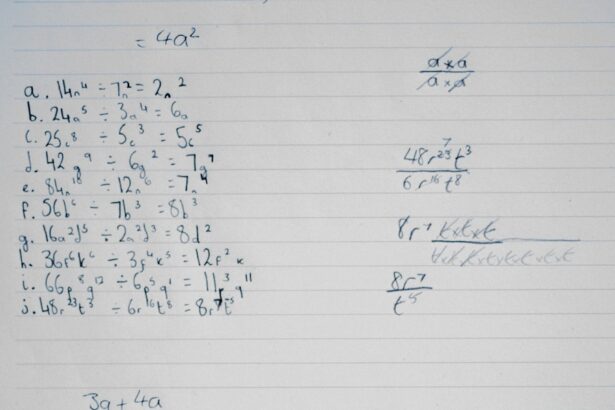 = 4a²
a. 14n⁴ ÷ 7n² = 2n²
b. 24a⁵ ÷ 3a⁴ = 6a
c. 25c⁸ ÷ 5c³ = 5c⁵
d. 42g⁹ ÷ 6g² = 7g⁷
e. 84n¹⁰ ÷ 12n⁶ = 7n⁴
f. 56b⁶ ÷ 7b³ = 8b³
g. 16a²d⁵ ÷ 2a²d³ = 8d²
h. 36f⁶k⁶ ÷ 3f⁴k⁵ = 12f²k
i. 66p⁸q¹² ÷ 6p⁵q¹ = 11p³q¹¹
j. 48r²³t³ ÷ 6r¹⁶t⁸ = 8r⁷t⁻⁵
3a + 4a
a × a
a × a
7
48r²³t³
6r¹⁶t⁸
8r⁷ t×t×t
t×t×t×t×t×t×t×t
8r⁷
t⁵